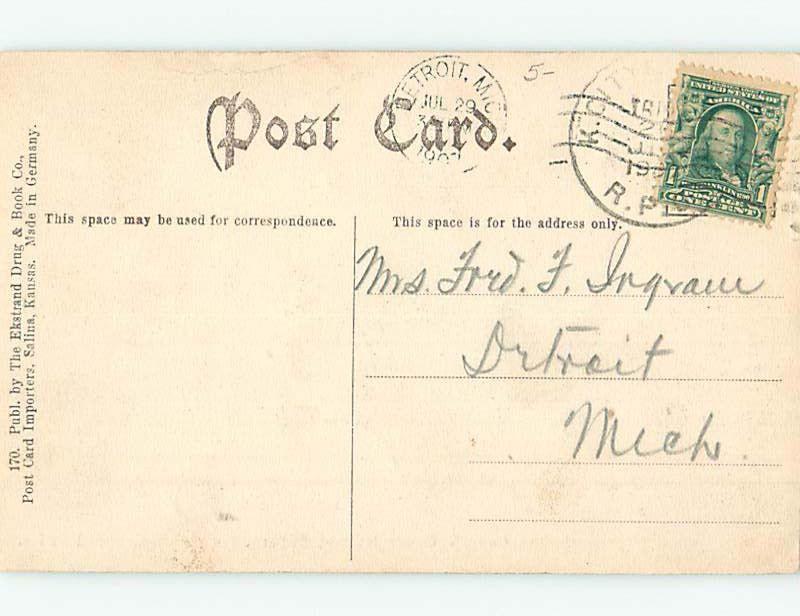 5-
DETROIT, MICH
JUL 29
Post Card.
170. Publ. by The Ekstrand Drug & Book Co.,
Post Card Importers, Salina, Kansas. Made in Germany.
This space may be used for correspondence.
This space is for the address only.
R.P.
UNITED STATES OF
AMERICA
FRANKLIN
1 1
POSTAGE
ONE CENT
Mrs. Fred. F. Ingram
Detroit
Mich.